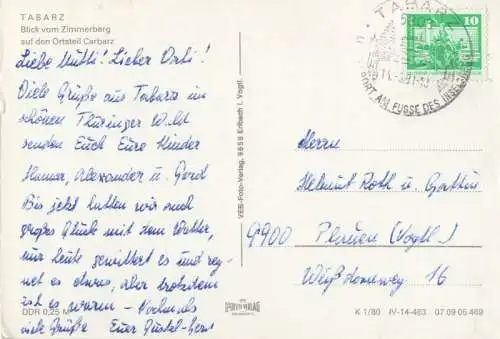 TABARZ
Blick vom Zimmerberg
auf den Ortsteil Carbarz
Liebe Mutti! Lieber Vati!
Viele Grüße aus Tabarz im
schönen Thüringer Wald
senden Euch Eure Kinder
Alexander u. Gerd
Bis jetzt hatten wir auch
großes Glück mit dem Wetter,
nur heute gewittert es und reg-
net es etwas, aber trotzdem
ist es warm - Nochmals
viele Grüße Eure
DDR 0,25 M
VEB-Foto-Verlag, 9659 Erlbach i. Vogtl.
TABARZ
10
ORT AM FUSSE DES
Herrn
Helmut Roth u. Gattin
9900 Plauen (Vogtl.)
16
K 1/80 IV-14-483 07 09 05 469